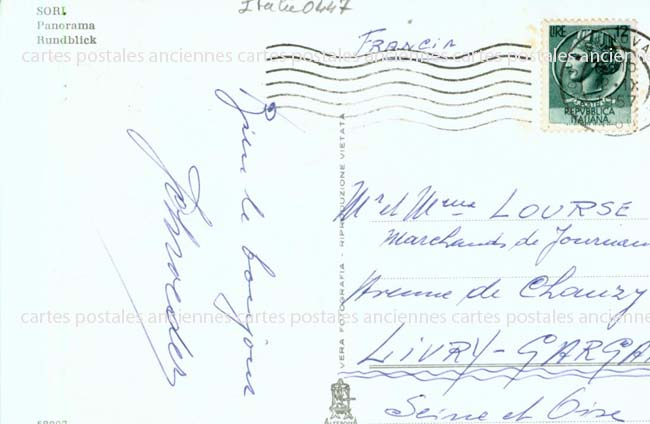 SORI
Panorama
Rundblick
Italie0447
FRANCIA
LIRE 12
REPVBBLICA
ITALIANA
Bien le bonjour
VERA FOTOGRAFIA - RIPRODUZIONE VIETATA
Mr et Mme LOURSE
Marchands de Journau
Avenue de Chanzy
LIVRY-GARGA
Seine et Oise
cartes postales anciennes cartes postales anciennes cartes postales anciennes
cartes postales anciennes cartes postales anciennes cartes postales anciennes